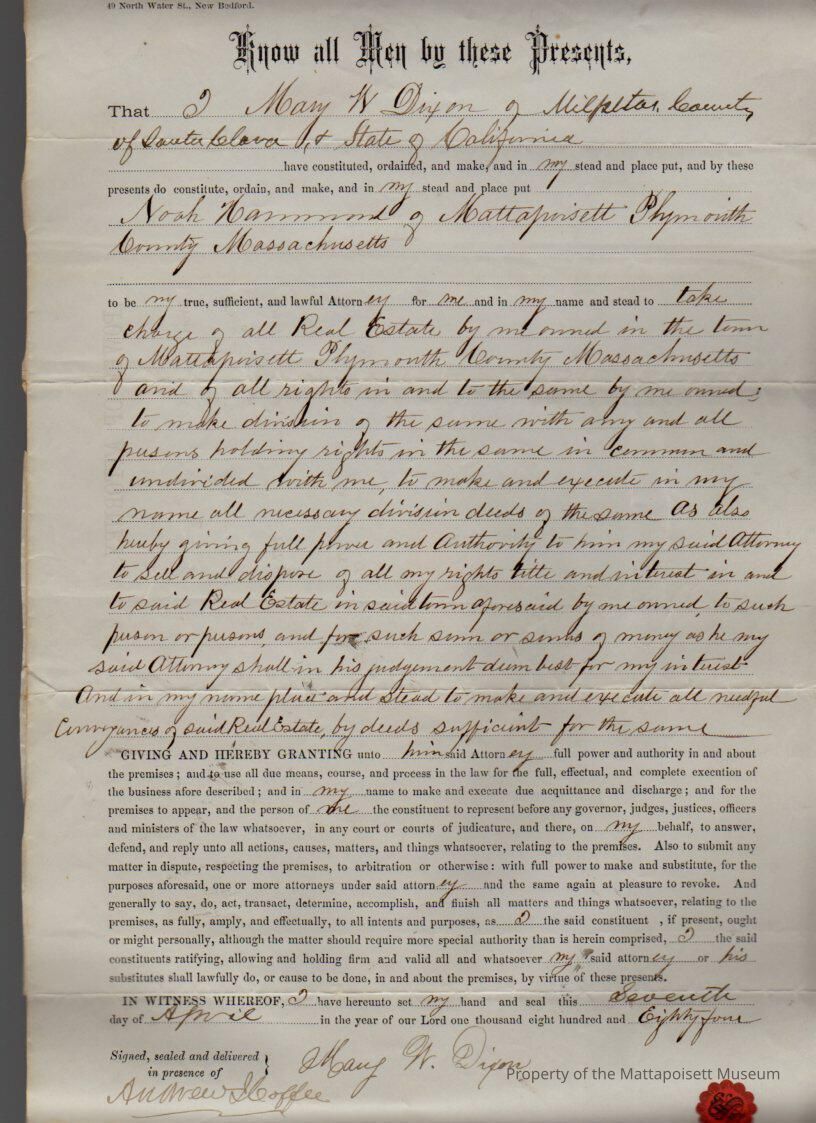 49 North Water St., New Bedford.
Know all Men by these Presents,
That I Mary W Dixon of Milpetas, County
of Santa Clara, & State of California
have constituted, ordained, and make, and in my stead and place put, and by these
presents do constitute, ordain, and make, and in my stead and place put
Noah Hammond of Mattapoisett Plymouth
County Massachusetts
to be my true, sufficient, and lawful Attorney for me and in my name and stead to take
charge of all Real Estate by me owned in the town
of Mattapoisett Plymouth County Massachusetts
and of all rights in and to the same by me owned;
to make division of the same with any and all
persons holding rights in the same in common and
undivided with me, to make and execute in my
name all necessary division deeds of the same As also
hereby giving full power and Authority to him my said Attorney
to sell and dispose of all my rights title and interest in and
to said Real Estate in said town aforesaid by me owned, to such
person or persons, and for such sum or sums of money as he my
said Attorney shall in his judgement deem best for my interest
And in my name place and stead to make and execute all needful
Conveyances of said Real Estate, by deeds sufficient for the same
GIVING AND HEREBY GRANTING unto him said Attorney full power and authority in and about
the premises; and to use all due means, course, and process in the law for the full, effectual, and complete execution of
the business afore described; and in my name to make and execute due acquittance and discharge; and for the
premises to appear, and the person of me the constituent to represent before any governor, judges, justices, officers
and ministers of the law whatsoever, in any court or courts of judicature, and there, on my behalf, to answer,
defend, and reply unto all actions, causes, matters, and things whatsoever, relating to the premises. Also to submit any
matter in dispute, respecting the premises, to arbitration or otherwise: with full power to make and substitute, for the
purposes aforesaid, one or more attorneys under said attorney and the same again at pleasure to revoke. And
generally to say, do, act, transact, determine, accomplish, and finish all matters and things whatsoever, relating to the
premises, as fully, amply, and effectually, to all intents and purposes, as I the said constituent , if present, ought
or might personally, although the matter should require more special authority than is herein comprised, I the said
constituents ratifying, allowing and holding firm and valid all and whatsoever my said attorney or his
substitutes shall lawfully do, or cause to be done, in and about the premises, by virtue of these presents.
IN WITNESS WHEREOF, I have hereunto set my hand and seal this Seventh
day of April in the year of our Lord one thousand eight hundred and Eighty four
Signed, sealed and delivered
in presence of
Mary W. Dixon
Andrew J Coffee
Property of the Mattapoisett Museum